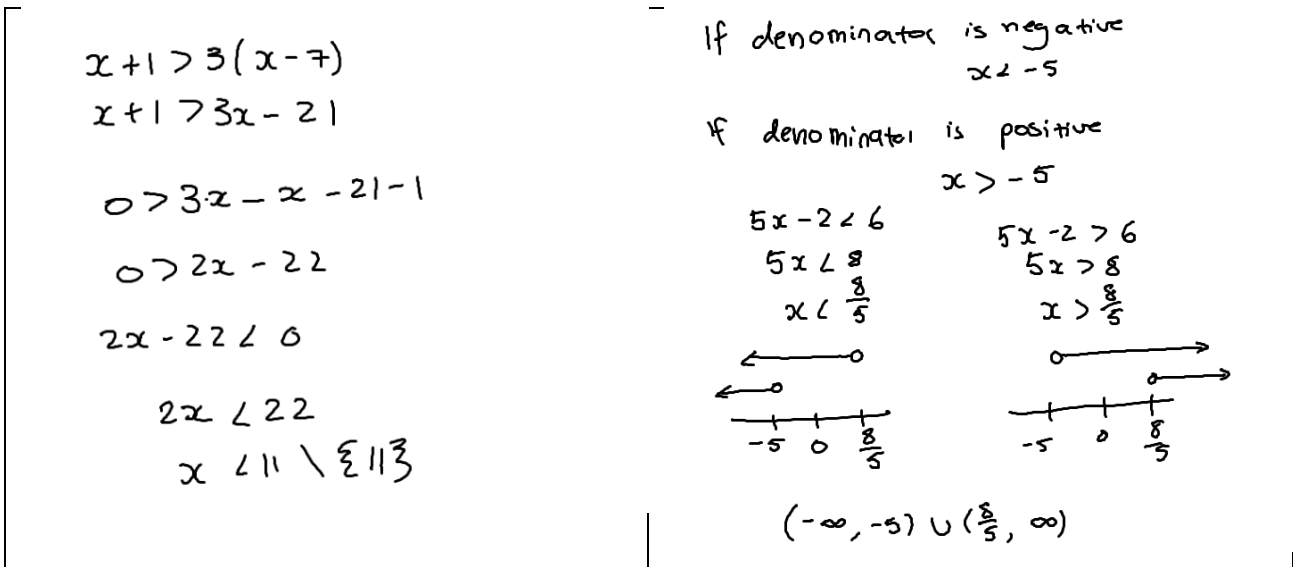 x+1>3(x-7)
x+1>3x-21
0>3x-x-21-1
0>2x-22
2x-22<0
2x<22
x<11\{11}
If denominator is negative
x<-5
If denominator is positive
x>-5
5x-2<6
5x<8
x<8/5
-5 0 8/5
5x-2>6
5x>8
x>8/5
-5 0 8/5
(-∞,-5)∪(8/5,∞)